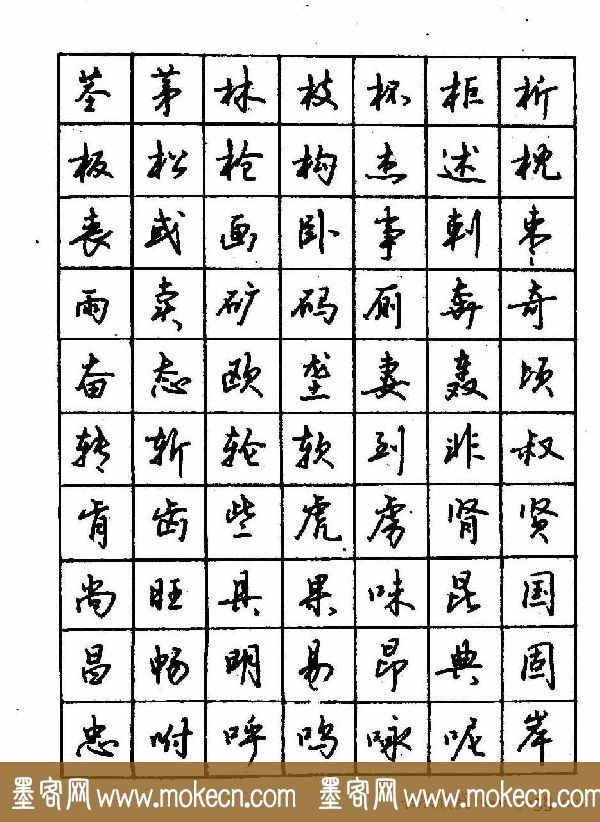 茎 茅 林 枝 杯 柜 析
板 松 枪 构 杰 述 枕
丧 或 画 卧 事 刺 枣
雨 卖 矿 码 厕 奔 奇
奋 态 欧 垄 妻 轰 顷
转 斩 轮 软 到 非 叔
肯 齿 些 虎 虏 肾 贤
尚 旺 具 果 味 昆 国
昌 畅 明 易 昂 典 固
忠 咐 呼 鸣 咏 呢 岸
墨客网 www.mokecn.com 墨客网 www.mokecn.com